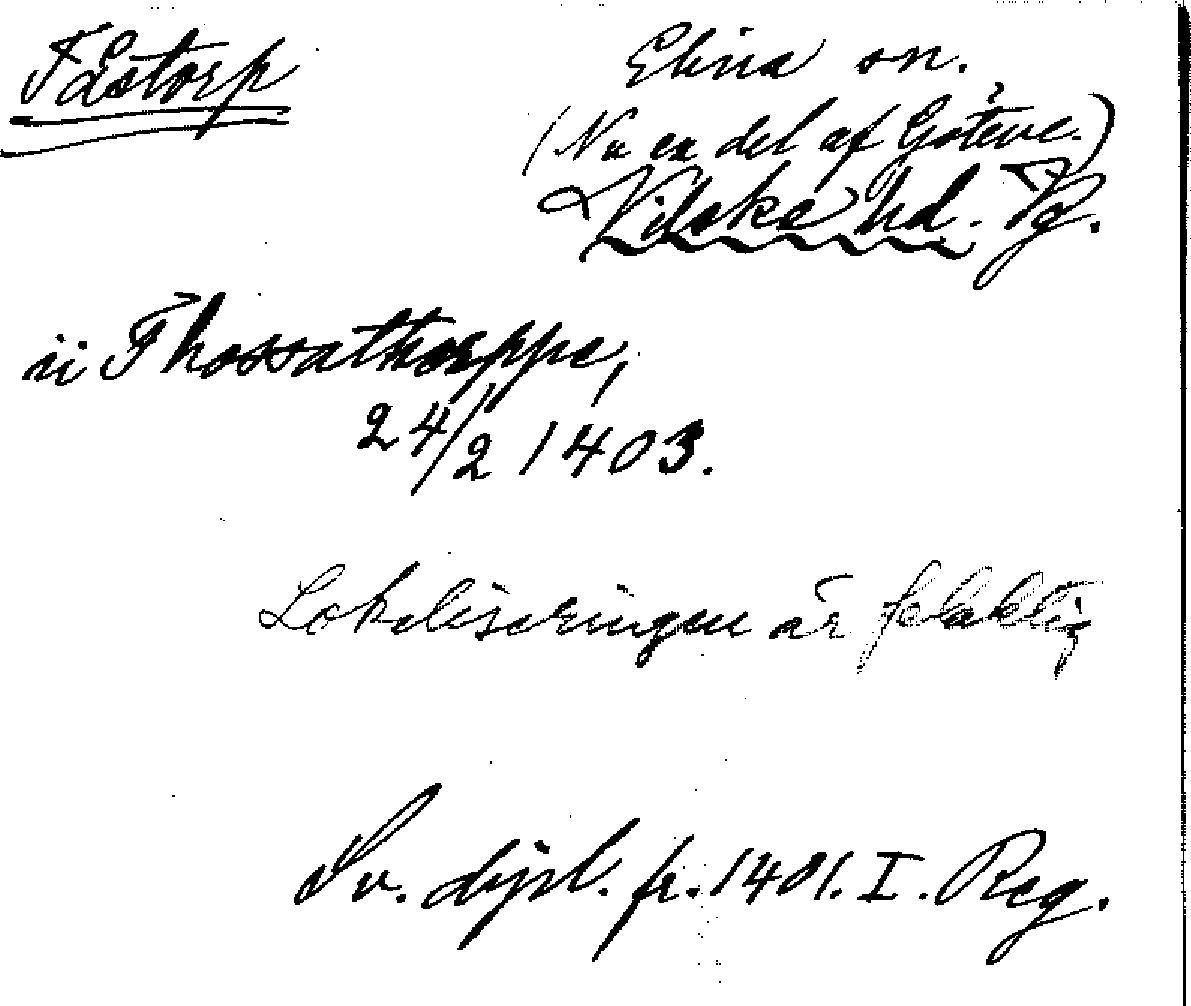 Tåstorp
Elina sn.
(Nu en del af Göteve.)
Vilske hd. Vg.
ii Thossathorppe,
24/2 1403.
Lokaliseringen är felaktig
Sv. dipl. fr. 1401. I. Reg.